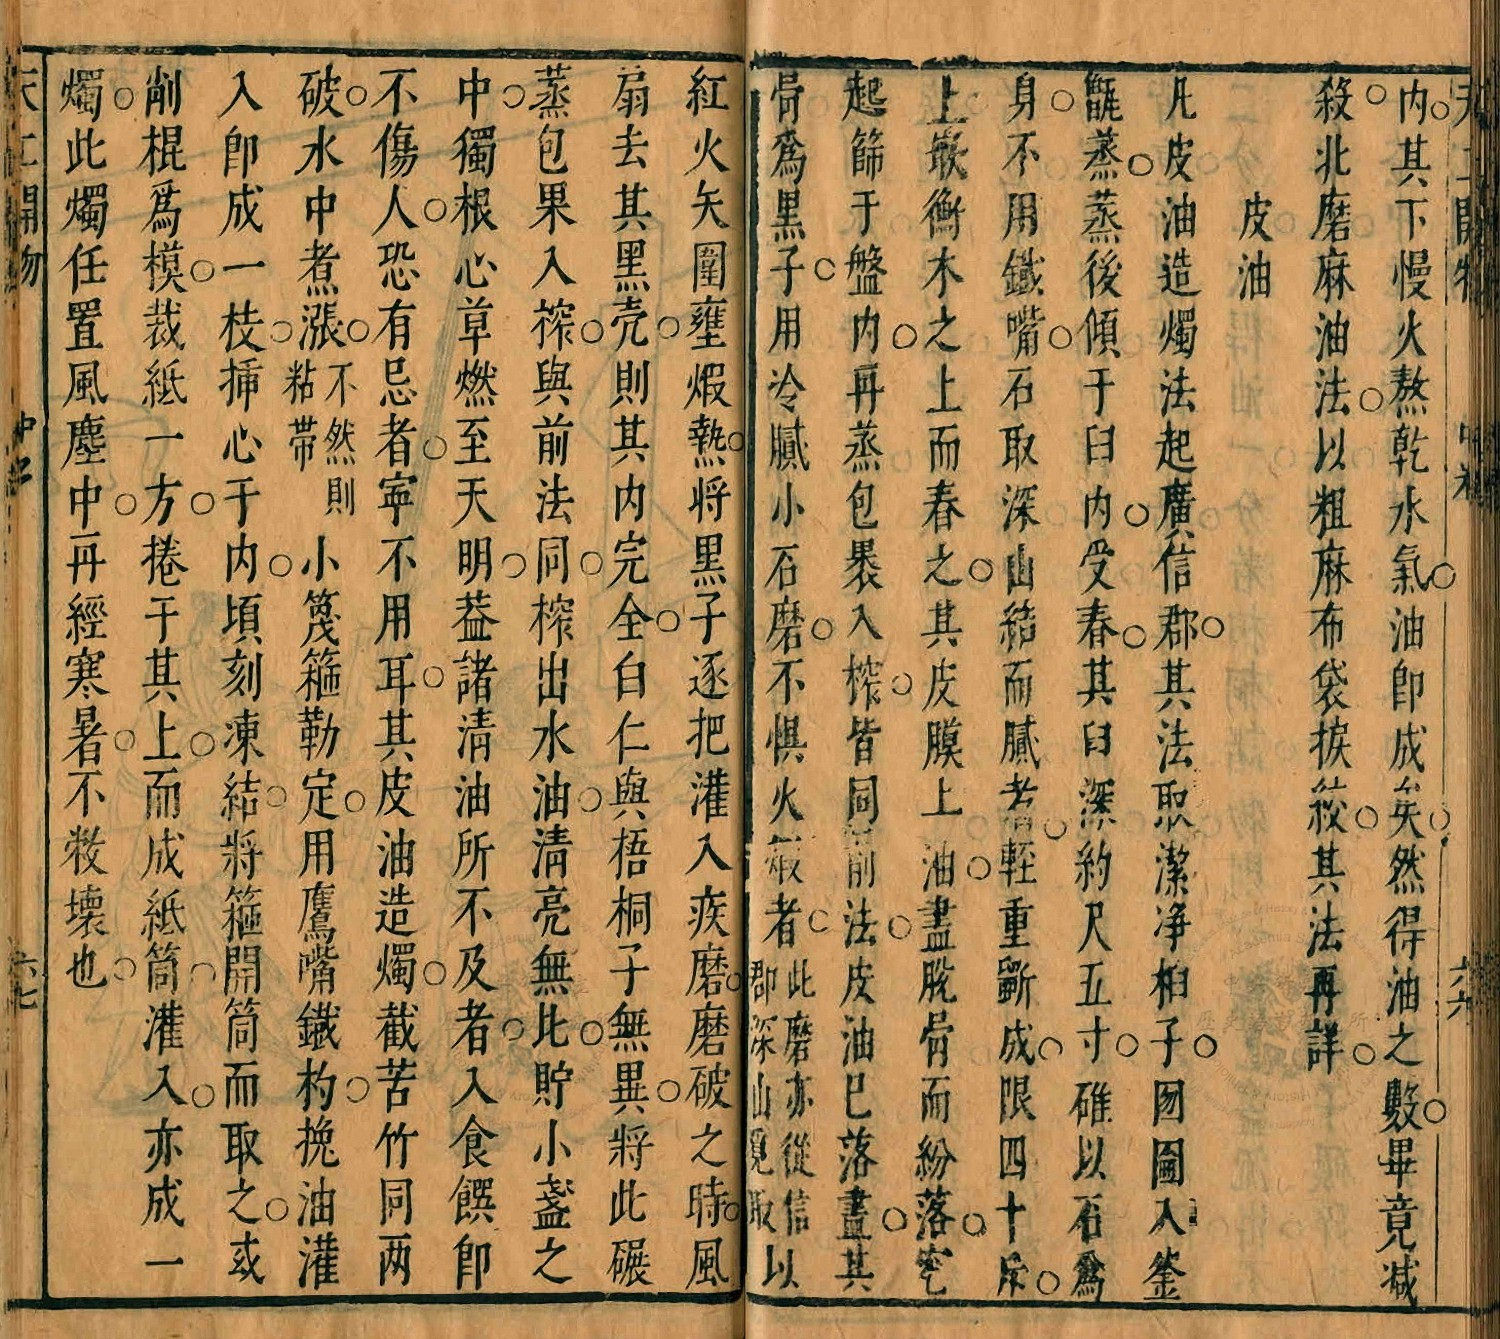 內其下慢火熬乾水氣油卽成矣然得油之數畢竟減
殺北磨麻油法以粗麻布袋捩絞其法再詳
皮油
凡皮油造燭法起廣信郡其法取潔凈桕子囫圇入釜
甑蒸蒸後傾于臼內受舂其臼深約尺五寸碓以石爲
身不用鐵嘴石取深山結而膩者輕重斵成限四十斤
上嵌衡木之上而舂之其皮膜上油盡脫骨而紛落穵
起篩于盤內再蒸包裹入榨皆同前法皮油已落盡其
骨爲黑子用冷膩小石磨不懼火煆者
此磨亦從信
郡深山覓取
以
紅火矢圍壅煆熱將黑子逐把灌入疾磨磨破之時風
扇去其黑壳則其內完全白仁與梧桐子無異將此碾
蒸包果入榨與前法同榨出水油清亮無比貯小盞之
中獨根心草燃至天明葢諸清油所不及者入食饌卽
不傷人恐有忌者寧不用耳其皮油造燭截苦竹筒兩
破水中煮漲
不然則
粘帶
小篾箍勒定用鷹嘴鐵杓挽油灌
入卽成一枝揷心于內頃刻凍結將箍開筒而取之或
削棍爲模裁紙一方捲于其上而成紙筒灌入亦成一
燭此燭任置風塵中再經寒暑不敝壞也
天工開物
六七